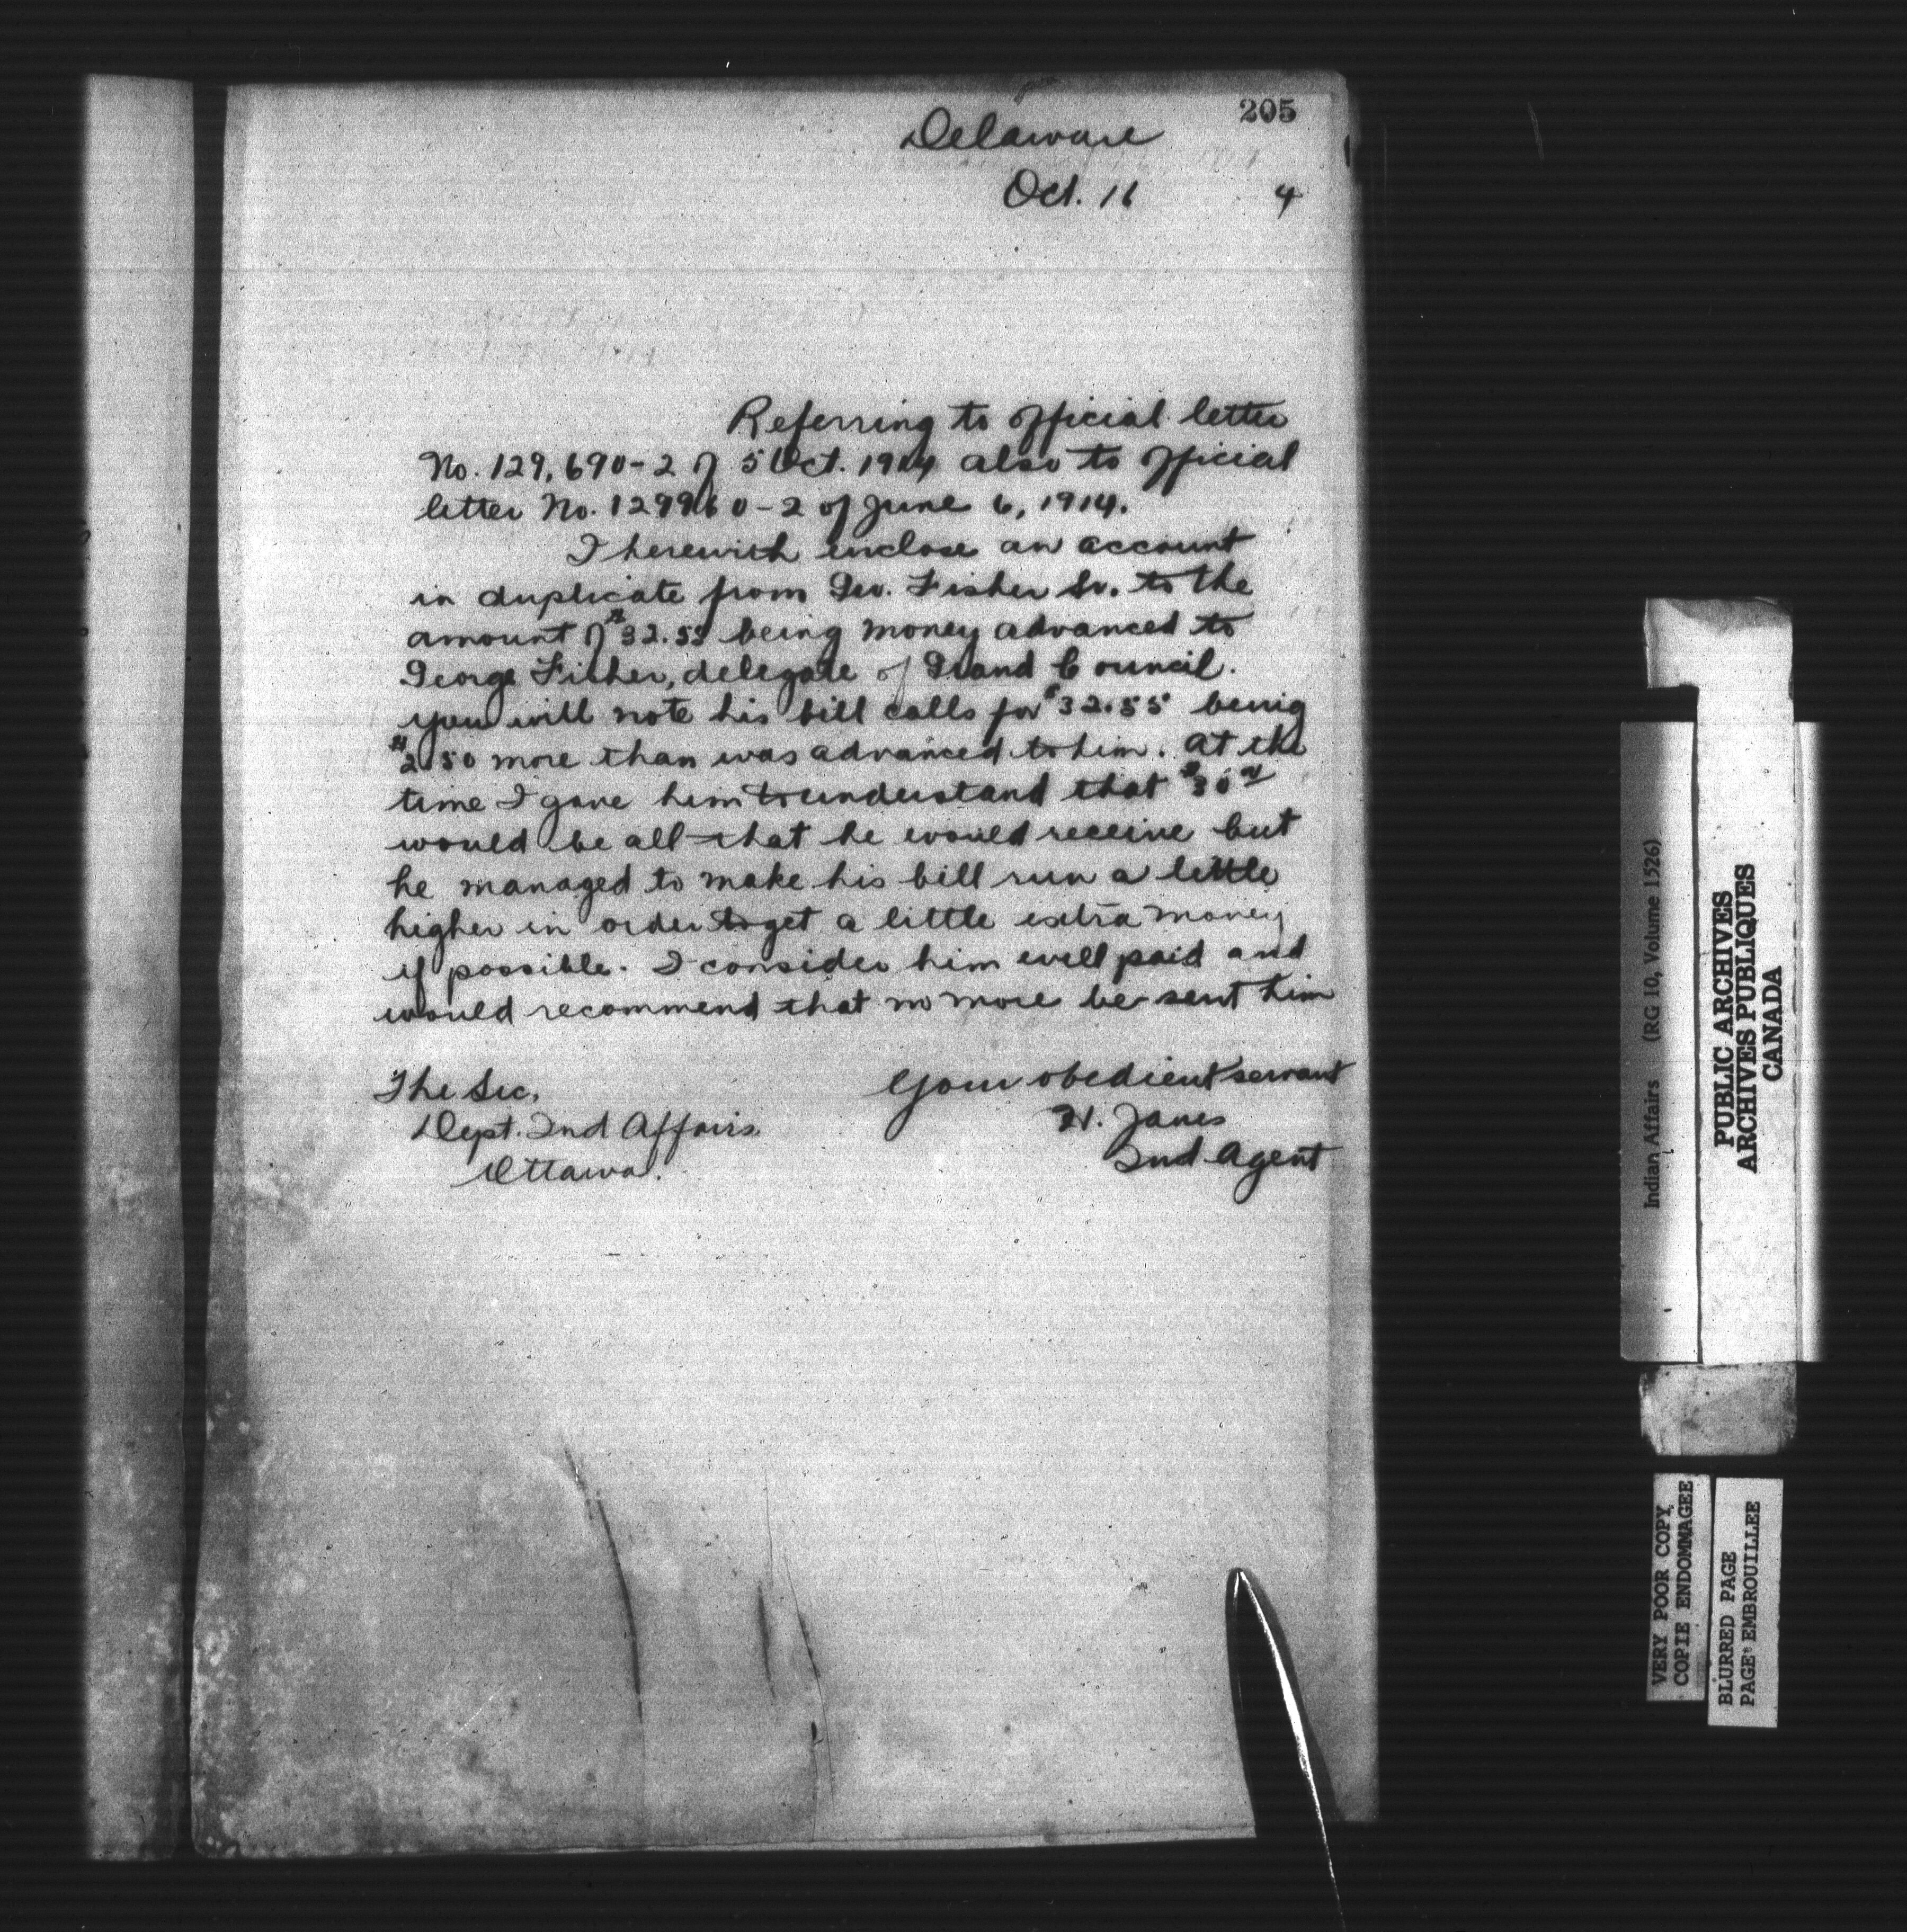 205
Delaware
Oct. 16 4
Referring to official letter
No. 129,690-2 of 5 Oct. 1914 also to official
letter No. 129960-2 of June 6, 1914.
I herewith enclose an account
in duplicate from Geo. Fisher Sr. to the
amount of $32.55 being money advanced to
George Fisher, delegate of Grand Council.
you will note his bill calls for $32.55 being
$2.50 more than was advanced to him. At the
time I gave him to understand that $30
would be all that he would receive but
he managed to make his bill run a little
higher in order to get a little extra money
if possible. I consider him well paid and
would recommend that no more be sent him
The Sec. Your obedient servant
Dept. Ind Affairs. Janes
Ottawa. Ind. Agent
Indian Affairs (RG 10, Volume 1526)
PUBLIC ARCHIVES
ARCHIVES PUBLIQUES
CANADA
VERY POOR COPY
COPIE ENDOMMAGEE
BLURRED PAGE
PAGE EMBROUILLEE